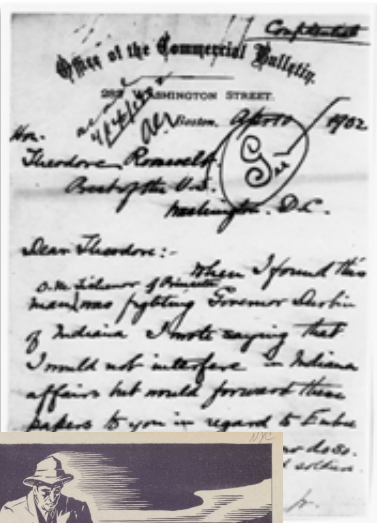 Confidential
Office of the Commercial Bulletin.
282 WASHINGTON STREET.
Boston, April 10 1902
Hon.
Theodore Roosevelt
Prest of the U.S.
Washington. D.C.
Dear Theodore:-
When I found this
man was fighting Governor Durbin
of Indiana I wrote saying that
I would not interfere in Indiana
affairs but would forward these
papers to you in regard to
NYC